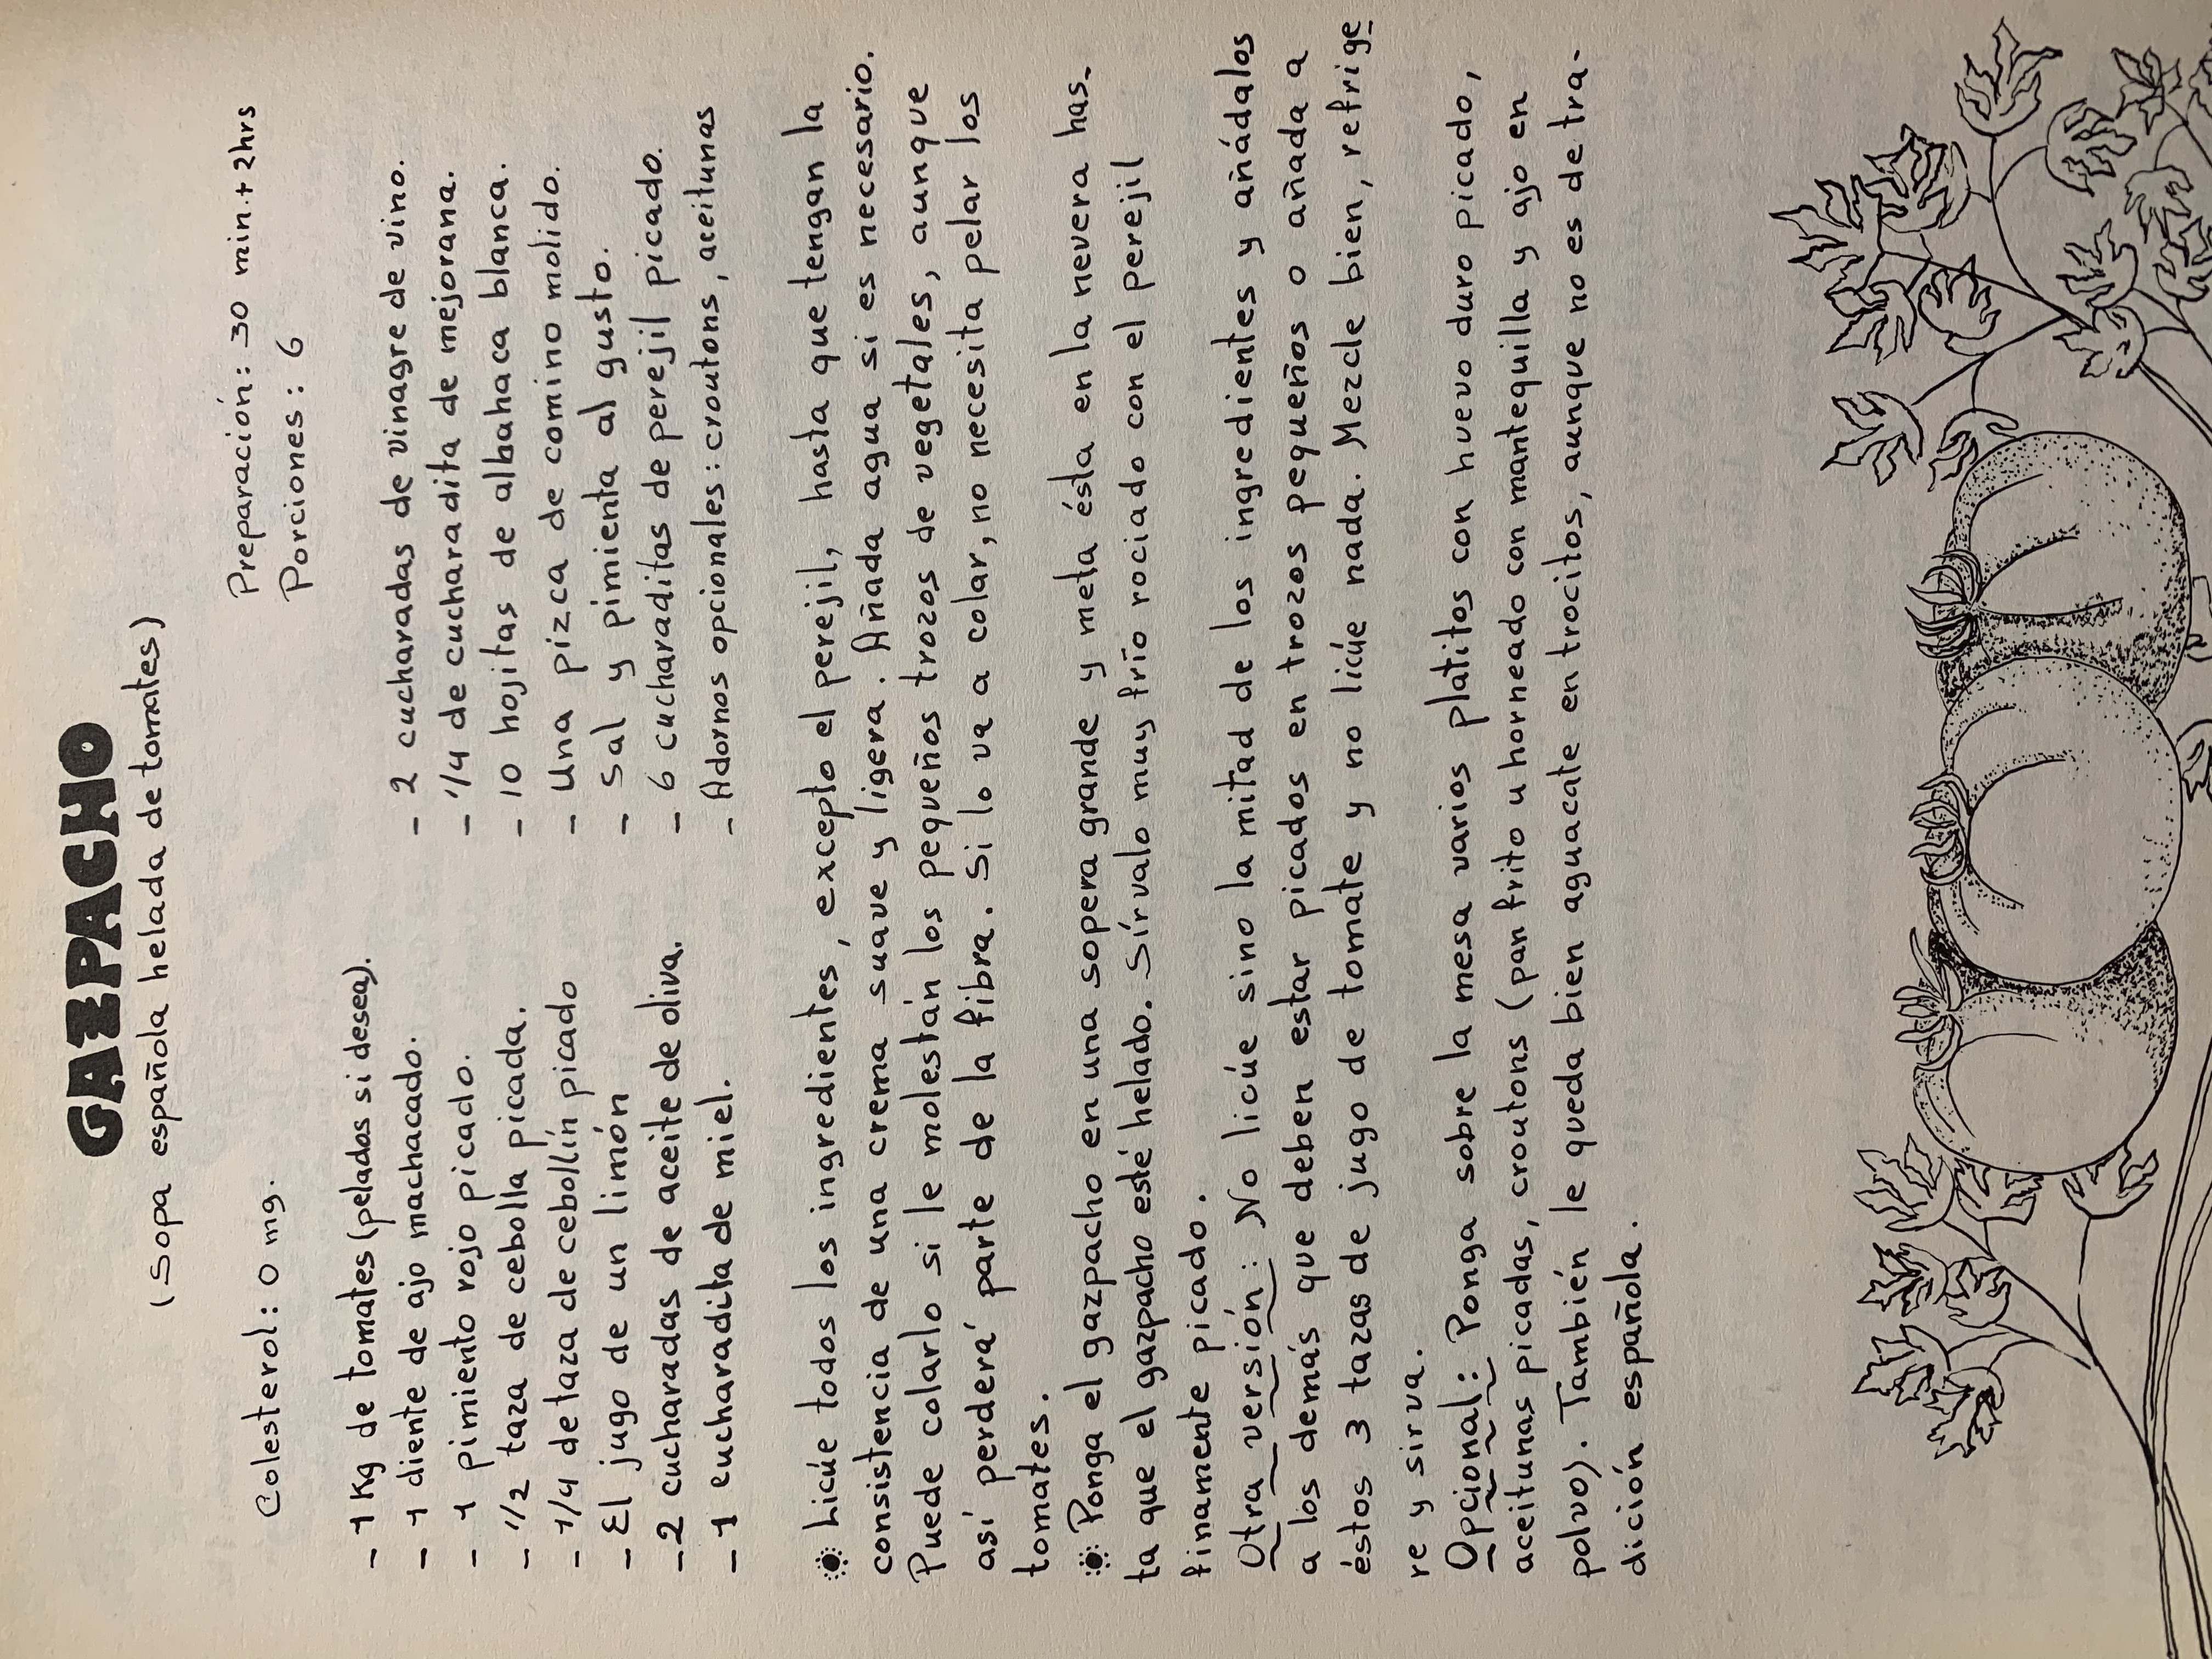 GAZPACHO
(Sopa española helada de tomates)
Colesterol: 0 mg.
Preparación: 30 min.+ 2hrs
Porciones: 6
- 1 Kg de tomates (pelados si desea).
- 1 diente de ajo machacado.
- 1 pimiento rojo picado.
- 1/2 taza de cebolla picada.
- 1/4 de taza de cebollín picado
- El jugo de un limón
- 2 cucharadas de aceite de oliva.
- 1 cucharadita de miel.
- 2 cucharadas de vinagre de vino.
- 1/4 de cucharadita de mejorana.
- 10 hojitas de albahaca blanca.
- Una pizca de comino molido.
- Sal y pimienta al gusto.
- 6 cucharaditas de perejil picado.
- Adornos opcionales: croutons, aceitunas
Licúe todos los ingredientes, excepto el perejil, hasta que tengan la
consistencia de una crema suave y ligera. Añada agua si es necesario.
Puede colarlo si le molestan los pequeños trozos de vegetales, aunque
así perderá parte de la fibra. Si lo va a colar, no necesita pelar los
tomates.
Ponga el gazpacho en una sopera grande y meta ésta en la nevera has-
ta que el gazpacho esté helado. Sírvalo muy frío rociado con el perejil
finamente picado.
Otra versión: No licúe sino la mitad de los ingredientes y añádalos
a los demás que deben estar picados en trozos pequeños o añada a
éstos 3 tazas de jugo de tomate y no licúe nada. Mezcle bien, refrige
re y sirva.
Opcional: Ponga sobre la mesa varios platitos con huevo duro picado,
aceitunas picadas, croutons (pan frito u horneado con mantequilla y ajo en
polvo). También le queda bien aguacate en trocitos, aunque no es de tra-
dición española.